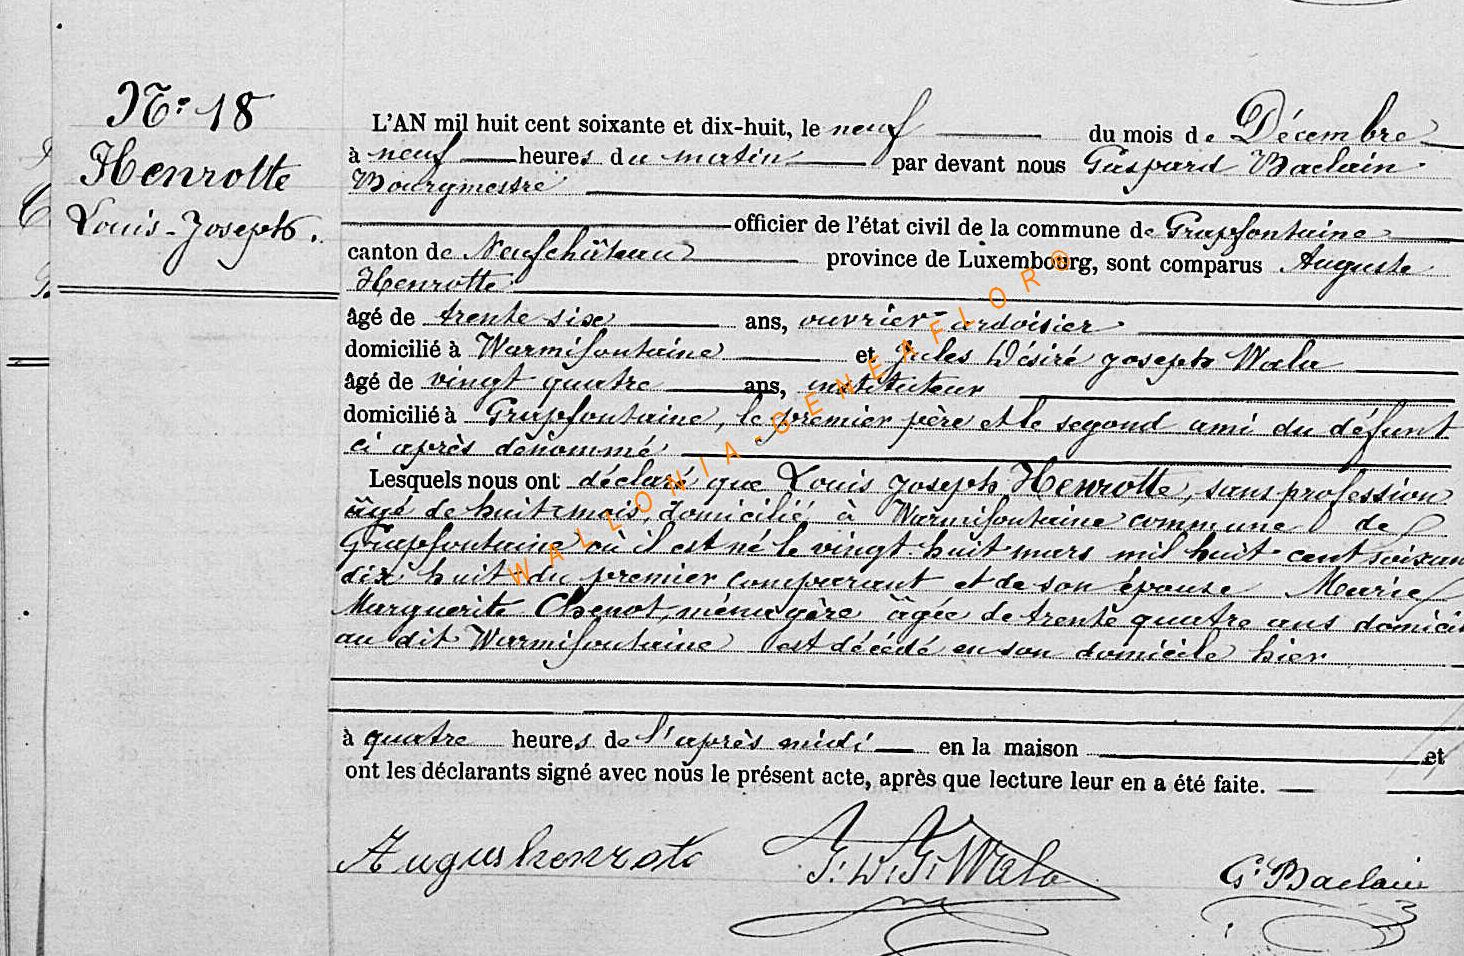 N° 18
Henrotte
Louis-Joseph.
L'AN mil huit cent soixante et dix-huit, le neuf du mois de Décembre
à neuf heures du matin par devant nous Gaspard Baclain
Bourgmestre
officier de l'état civil de la commune de Grapfontaine
canton de Neufchâteau province de Luxembourg, sont comparus Auguste
Henrotte
âgé de trente six ans, ouvrier-ardoisier
domicilié à Warmifontaine et Jules Désiré Joseph Wala
âgé de vingt quatre ans, instituteur
domicilié à Grapfontaine, le premier père et le segond ami du défunt
ci après dénommé
Lesquels nous ont déclaré que Louis Joseph Henrotte, sans profession
âgé de huit mois, domicilié à Warmifontaine commune de
Grapfontaine où il est né le vingt huit mars mil huit cent soixan
dix huit du premier comparant et de son épouse Marie
Marguerite Chenot, ménagère âgée de trente quatre ans domicil
au dit Warmifontaine est décédé en son domicile hier
à quatre heures de l'après midi en la maison et
ont les déclarants signé avec nous le présent acte, après que lecture leur en a été faite.
J. D. J. Wala
G. Baclain
WALLONIA-GENEAFLOR®